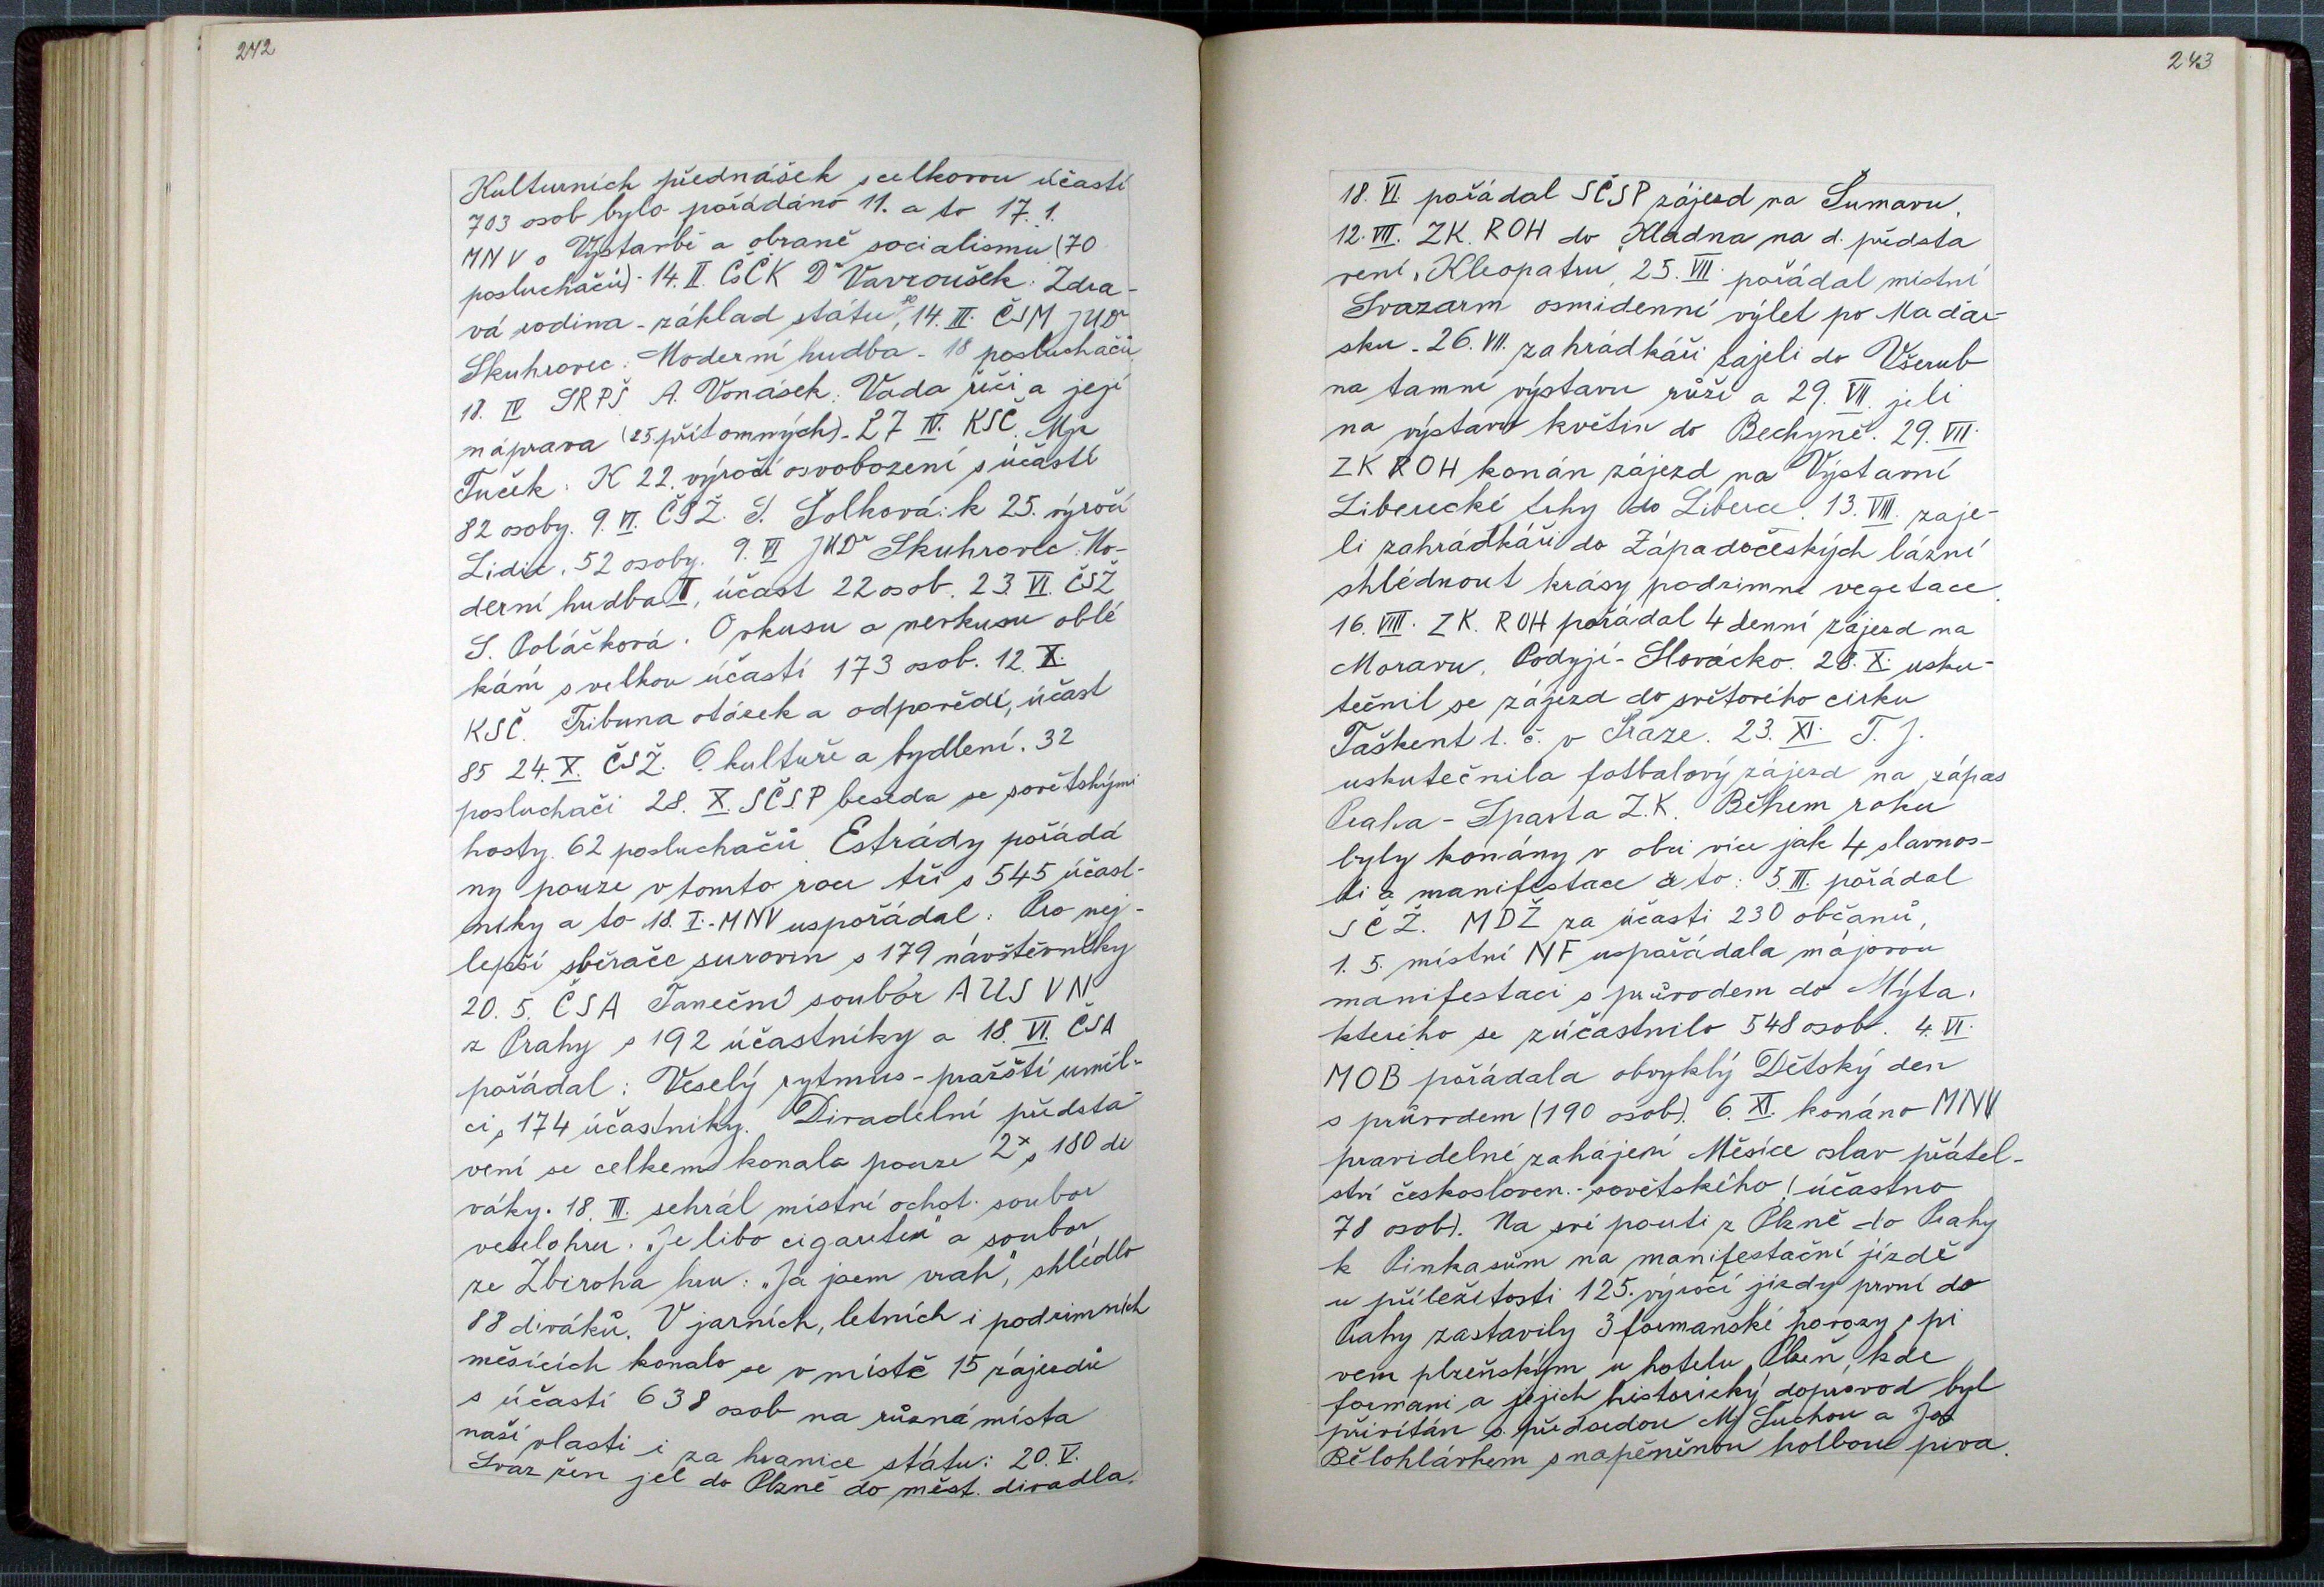 242
Kulturních přednášek s celkovou účastí
703 osob bylo pořádáno 11. a to 17. 1.
MNV o Výstavbě a obraně socialismu (70
posluchačů) - 14. II. ČSČK Dr Vavroušek: Zdra-
vá rodina - základ státu, 14. III. ČSM JUDr
Skuhrovec: Moderní hudba - 18 posluchačů
18. IV SRPŠ A. Vonásek: Vada řeči a její
náprava (25 přítomných) - 27 IV. KSČ. Mjr
Tuček: K 22. výročí osvobození s účastí
82 osoby. 9. VI. ČSŽ. S. Šolková: k 25. výročí
Lidic. 52 osoby. 9. VI JUDr Skuhrovec: Mo-
derní hudba II, účast 22 osob. 23 VI. ČSŽ
S. Poláčková. O vkusu a nevkusu oblé
kání s velkou účastí 173 osob. 12. X.
KSČ. Tribuna otázek a odpovědí, účast
85 24. X. ČSŽ. O kultuře a bydlení. 32
posluchači 28. X. SČSP beseda se sovětskými
hosty. 62 posluchačů Estrády pořádá
ny pouze v tomto roce tři s 545 účast-
níky a to 18. I. - MNV uspořádal: Pro nej-
lepší sběrače surovin s 179 návštěvníky
20. 5. ČSA Taneční soubor AUS VN
z Prahy s 192 účastníky a 18. VI. ČSA
pořádal: Veselý rytmus - pražští uměl-
ci, 174 účastníky. Divadelní předsta-
vení se celkem konala pouze 2x s 180 di
váky. 18. III. sehrál místní ochot. soubor
veselohru. "Je libo cigaretu" a soubor
ze Zbiroha hru: "Já jsem vrah", shlédlo
88 diváků. V jarních, letních i podzimních
měsících konalo se v místě 15 zájezdů
s účastí 638 osob na různá místa
naší vlasti i za hranice státu: 20. V.
Svaz žen jel do Plzně do měst. divadla.
243
18. VI. pořádal SČSP zájezd na Šumavu.
12. VII. ZK. ROH do Kladna na d. předsta
vení "Kleopatru" 25. VII. pořádal místní
Svazarm osmidenní výlet po Maďar-
sku - 26. VII. zahrádkáři zajeli do Všerub
na tamní výstavu růží a 29. VII. jeli
na výstavu květin do Bechyně. 29. VII.
ZK ROH konán zájezd na Výstavní
Liberecké trhy do Liberce. 13. VIII. zaje-
li zahrádkáři do Západočeských lázní
shlédnout krásy podzimní vegetace.
16. VIII. ZK. ROH pořádal 4 denní zájezd na
Moravu. Podyjí - Slovácko. 28. X. usku-
tečnil se zájezd do světového cirku
Taškent t. č. v Praze. 23. XI. T. J.
uskutečnila fotbalový zájezd na zápas
Praha - Sparta Z.K. Během roku
byly konány v obci více jak 4 slavnos-
ti a manifestace a to: 5. III. pořádal
SČŽ. MDŽ za účasti 230 občanů,
1. 5. místní NF uspořádala májovou
manifestaci s průvodem do Mýta.
kterého se zúčastnilo 548 osob. 4. VI.
MOB pořádala obvyklý Dětský den
s průvodem (190 osob). 6. XI. konáno MNV
pravidelné zahájení Měsíce oslav přátel-
ství českosloven. - sovětského (účastno
78 osob). Na své pouti z Plzně do Prahy
k Pinkasům na manifestační jízdě
u příležitosti 125. výročí jízdy první do
Prahy zastavily 3 formanské povozy s pi
vem plzeňským u hotelu Plzeň, kde
formani a jejich historický doprovod byl
přivítán s. předsedou MJ Suchou a Jos
Bělohlávkem s napěněnou holbou piva.